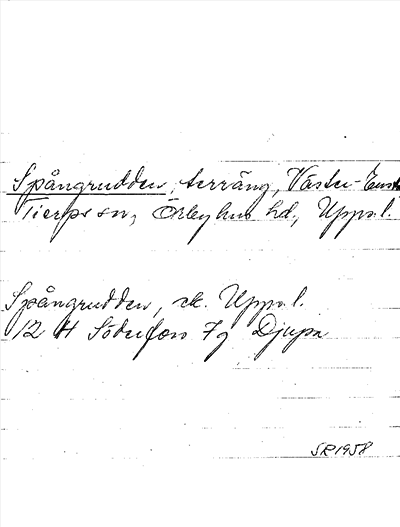 Spångrudden, terräng, Väster-Ens
Tierps sn, Örbyhus hd, Uppl.
Spångrudden, ek. Uppl.
12 H Söderfors 7g Djupa
SR 1958